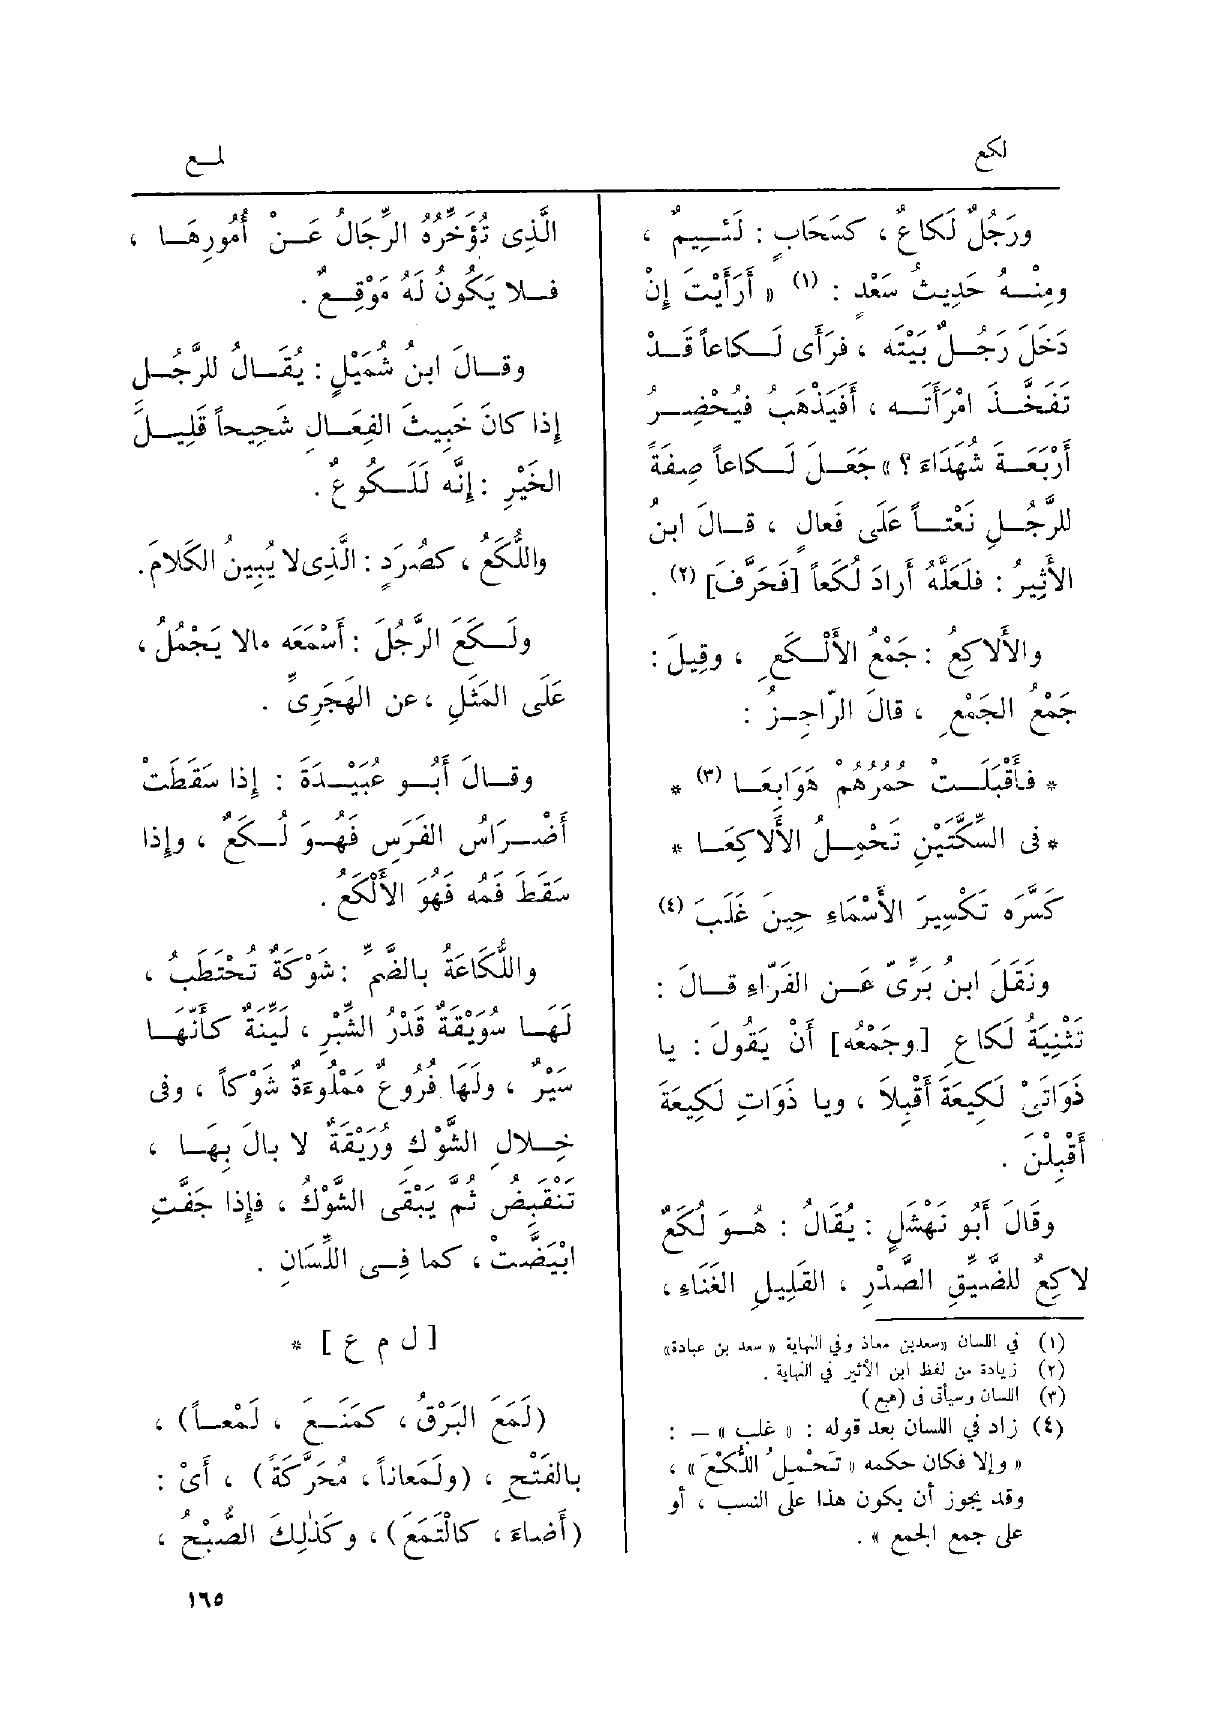 لكع
لمع
ورَجُلٌ لَكاعٌ ، كسَحَابٍ : لَئِيمٌ ،
ومِنْهُ حَدِيثُ سَعْدٍ : (١) « أَرَأَيْتَ إِنْ
دَخَلَ رَجُلٌ بَيْتَه ، فرَأَى لَكاعاً قَدْ
تَفَخَّذَ امْرَأَتَه ، أَفَيَذْهَبُ فيُحْضِرُ
أَرْبَعَةَ شُهَدَاءَ ؟ » جَعَلَ لَكاعاً صِفَةً
للرَّجُلِ نَعْتاً عَلَى فَعالٍ ، قالَ ابنُ
الأَثِيرُ : فلَعَلَّهُ أَرادَ لُكَعاً [فَحَرَّفَ] (٢) .
والأَلاكِعُ : جَمْعُ الأَلْكَعِ ، وقِيلَ :
جَمْعُ الجَمْعِ ، قالَ الرّاجِزُ :
* فأَقْبَلَتْ حُمْرُهُمْ هَوَابِعَا (٣) *
* فى السِّكَّتَيْنِ تَحْمِلُ الأَلاكِعَا *
كَسَّرَه تَكْسِيرَ الأَسْمَاءِ حِينَ غَلَبَ (٤)
ونَقَلَ ابن بَرِّىّ عَن الفَرّاءِ قالَ :
تَثْنِيَةُ لَكاعِ [وجَمْعُه] أَنْ يَقُولَ : يا
ذَوَاتَىْ لَكِيعَةَ أَقْبِلاَ ، ويا ذَوَاتِ لَكِيعَةَ
أَقْبِلْنَ .
وقَالَ أَبُو نَهْشَلٍ : يُقَالُ : هُوَ لُكَعٌ
لاكِعٌ للضَّيِّقِ الصَّدْرِ ، القَلِيلِ الغَنَاءِ ،
(١) في اللسان «سعدبن معاذ وفي النهاية « سعد بن عبادة»
(٢) زيادة من لفظ ابن الأثير في النهاية .
(٣) اللسان وسيأتى فى (هبع)
(٤) زاد في اللسان بعد قوله : « غلب » – :
« وإلا فكان حكمه « تَحْمِلُ اللُّكْعَ » ،
وقد يجوز أن يكون هذا على النسب ، أو
على جمع الجمع » .
الَّذِى تُؤَخِّرُهُ الرِّجَالُ عَنْ أُمُورِهَا ،
فلا يَكُونُ لَهُ مَوْقِعٌ .
وقالَ ابنُ شُمَيْلٍ : يُقَالُ للرَّجُلِ
إِذا كانَ خَبِيثَ الفِعَالِ شَحِيحاً قَلِيلَ
الخَيْرِ : إِنَّه لَلَكُوعٌ .
واللُّكَعُ ، كصُرَدٍ : الَّذِى لا يُبِينُ الكَلامَ.
ولَكَعَ الرَّجُلَ : أَسْمَعَه مالا يَجْمُلُ ،
عَلَى المَثَلِ ، عن الهَجَرِىِّ .
وقالَ أَبُو عُبَيْدَةَ : إِذا سَقَطَتْ
أَضْرَاسُ الفَرَسِ فَهُوَ لُكَعٌ ، وإِذا
سَقَطَ فَمُه فَهُوَ الأَلْكَعُ .
واللُّكَاعَةُ بالضَّمِّ : شَوْكَةٌ تُحْتَطَبُ ،
لَهَا سُوَيْقَةٌ قَدْرُ الشِّبْرِ ، لَيِّنَةٌ كأَنَّهَا
سَيْرٌ ، ولَهَا فُرُوعٌ مَمْلُوءَةٌ شَوْكاً ، وفى
خِلالِ الشَّوْكِ وُرَيْقَةٌ لا بالَ بِهَا ،
تَنْقَبِضُ ثُمَّ يَبْقَى الشَّوْكُ ، فإِذا جَفَّتِ
ابْيَضَّتْ ، كما فِى اللِّسَانِ .
[ ل م ع ] *
(لَمَعَ البَرْقُ ، كمَنَعَ ، لَمْعاً) ،
بالفَتْحِ ، (ولَمَعاناً ، مُحَرَّكَةً) ، أَىْ :
(أَضاءَ ، كالْتَمَعَ) ، وكَذٰلِكَ الصُّبْحُ ،
١٦٥